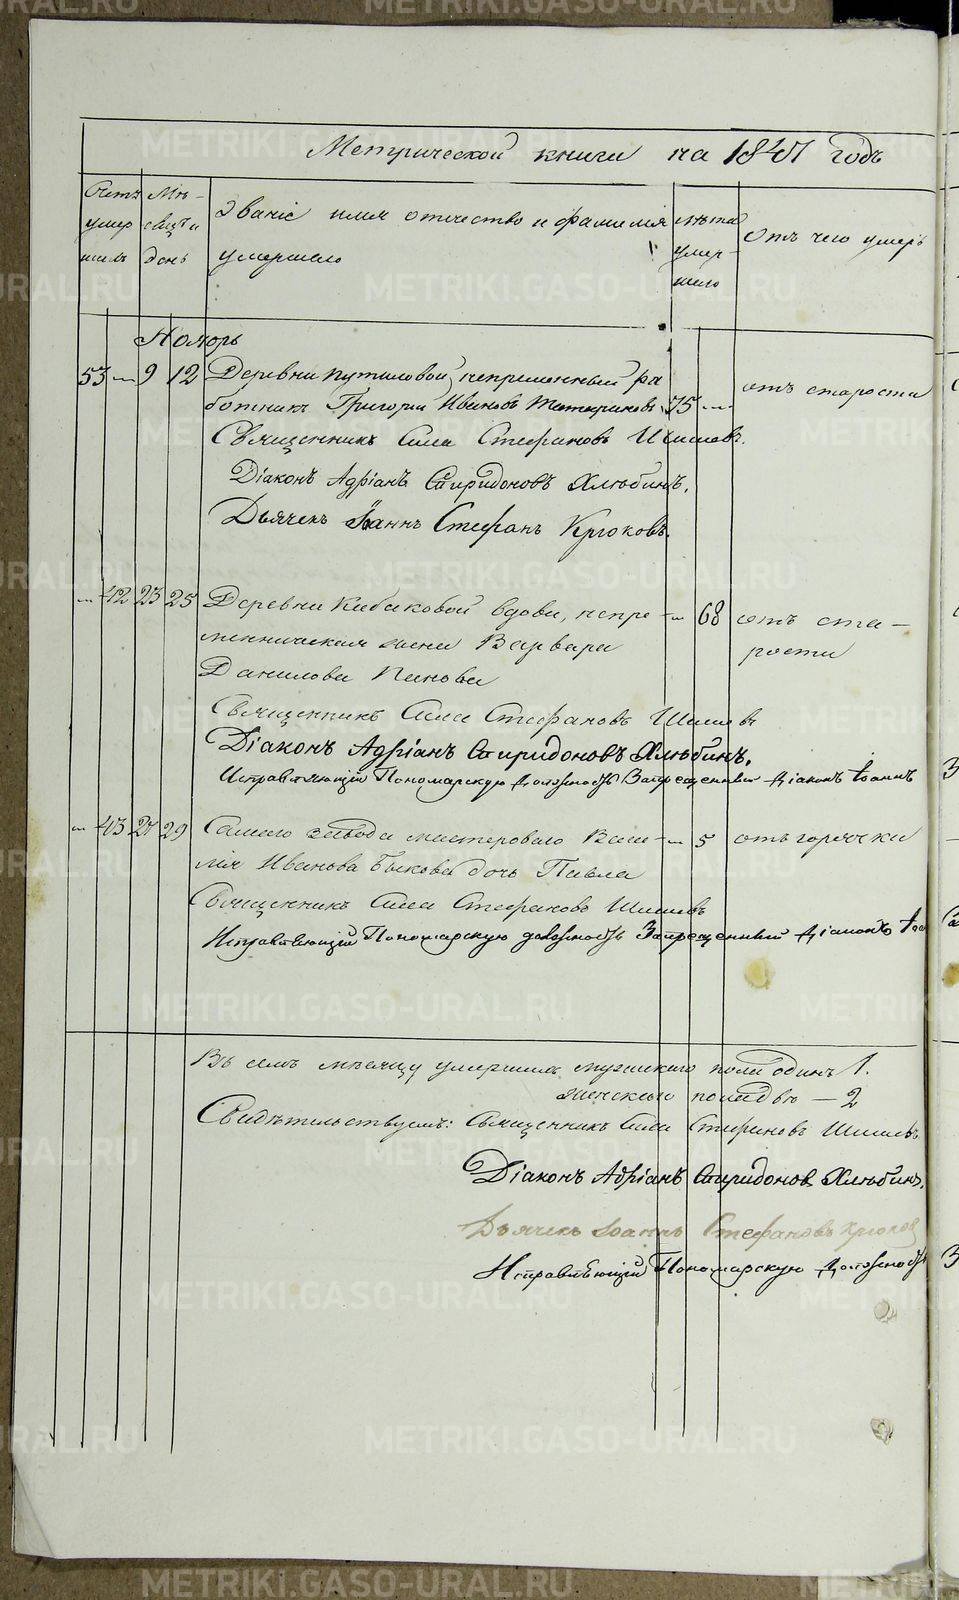 Метрической книги на 1847 годъ
Счетъ умер шихъ
Мѣ- сяцъ и день
Званіе имя отчество и фамилія умершаго
лѣта умер- шаго
Отъ чего умеръ
Ноябрь
53 — 9 12 Деревни Путиловой, непременный ра 75 — отъ старости
ботникъ Григорий Ивановъ
Священникъ Сила Стефановъ Шишевъ.
Діаконъ Адріанъ Спиридоновъ Хлюбинъ.
Дьячекъ Іоаннъ Стефанъ Крюковъ.
— 42 23 25 Деревни Кибаковой вдова, непре- — 68 отъ ста-
менническая жена Варвара рости
Данилова Панова
Священникъ Сила Стефановъ Шишевъ
Діаконъ Адріанъ Спиридоновъ Хлюбинъ.
Исправляющій Пономарскую должность Запрещенный діаконъ Іоаннъ
— 43 27 29 Самаго завода мастероваго Васи- — 5 отъ горячки
лія Иванова Быкова дочь Павла
Священникъ Сила Стефановъ Шишевъ
Исправляющій Пономарскую должность Запрещенный діаконъ Іоа
Въ семъ месяцу умершихъ мужескаго пола одинъ 1.
женскаго пола двѣ — 2
Свидѣтельствуемъ: Священникъ Сила Стефановъ Шишевъ.
Діаконъ Адріанъ Спиридоновъ Хлюбинъ.
Дьячекъ Іоаннъ Стефановъ Крюковъ
Исправляющій Пономарскую должность
METRIKI.GASO-URAL.RU